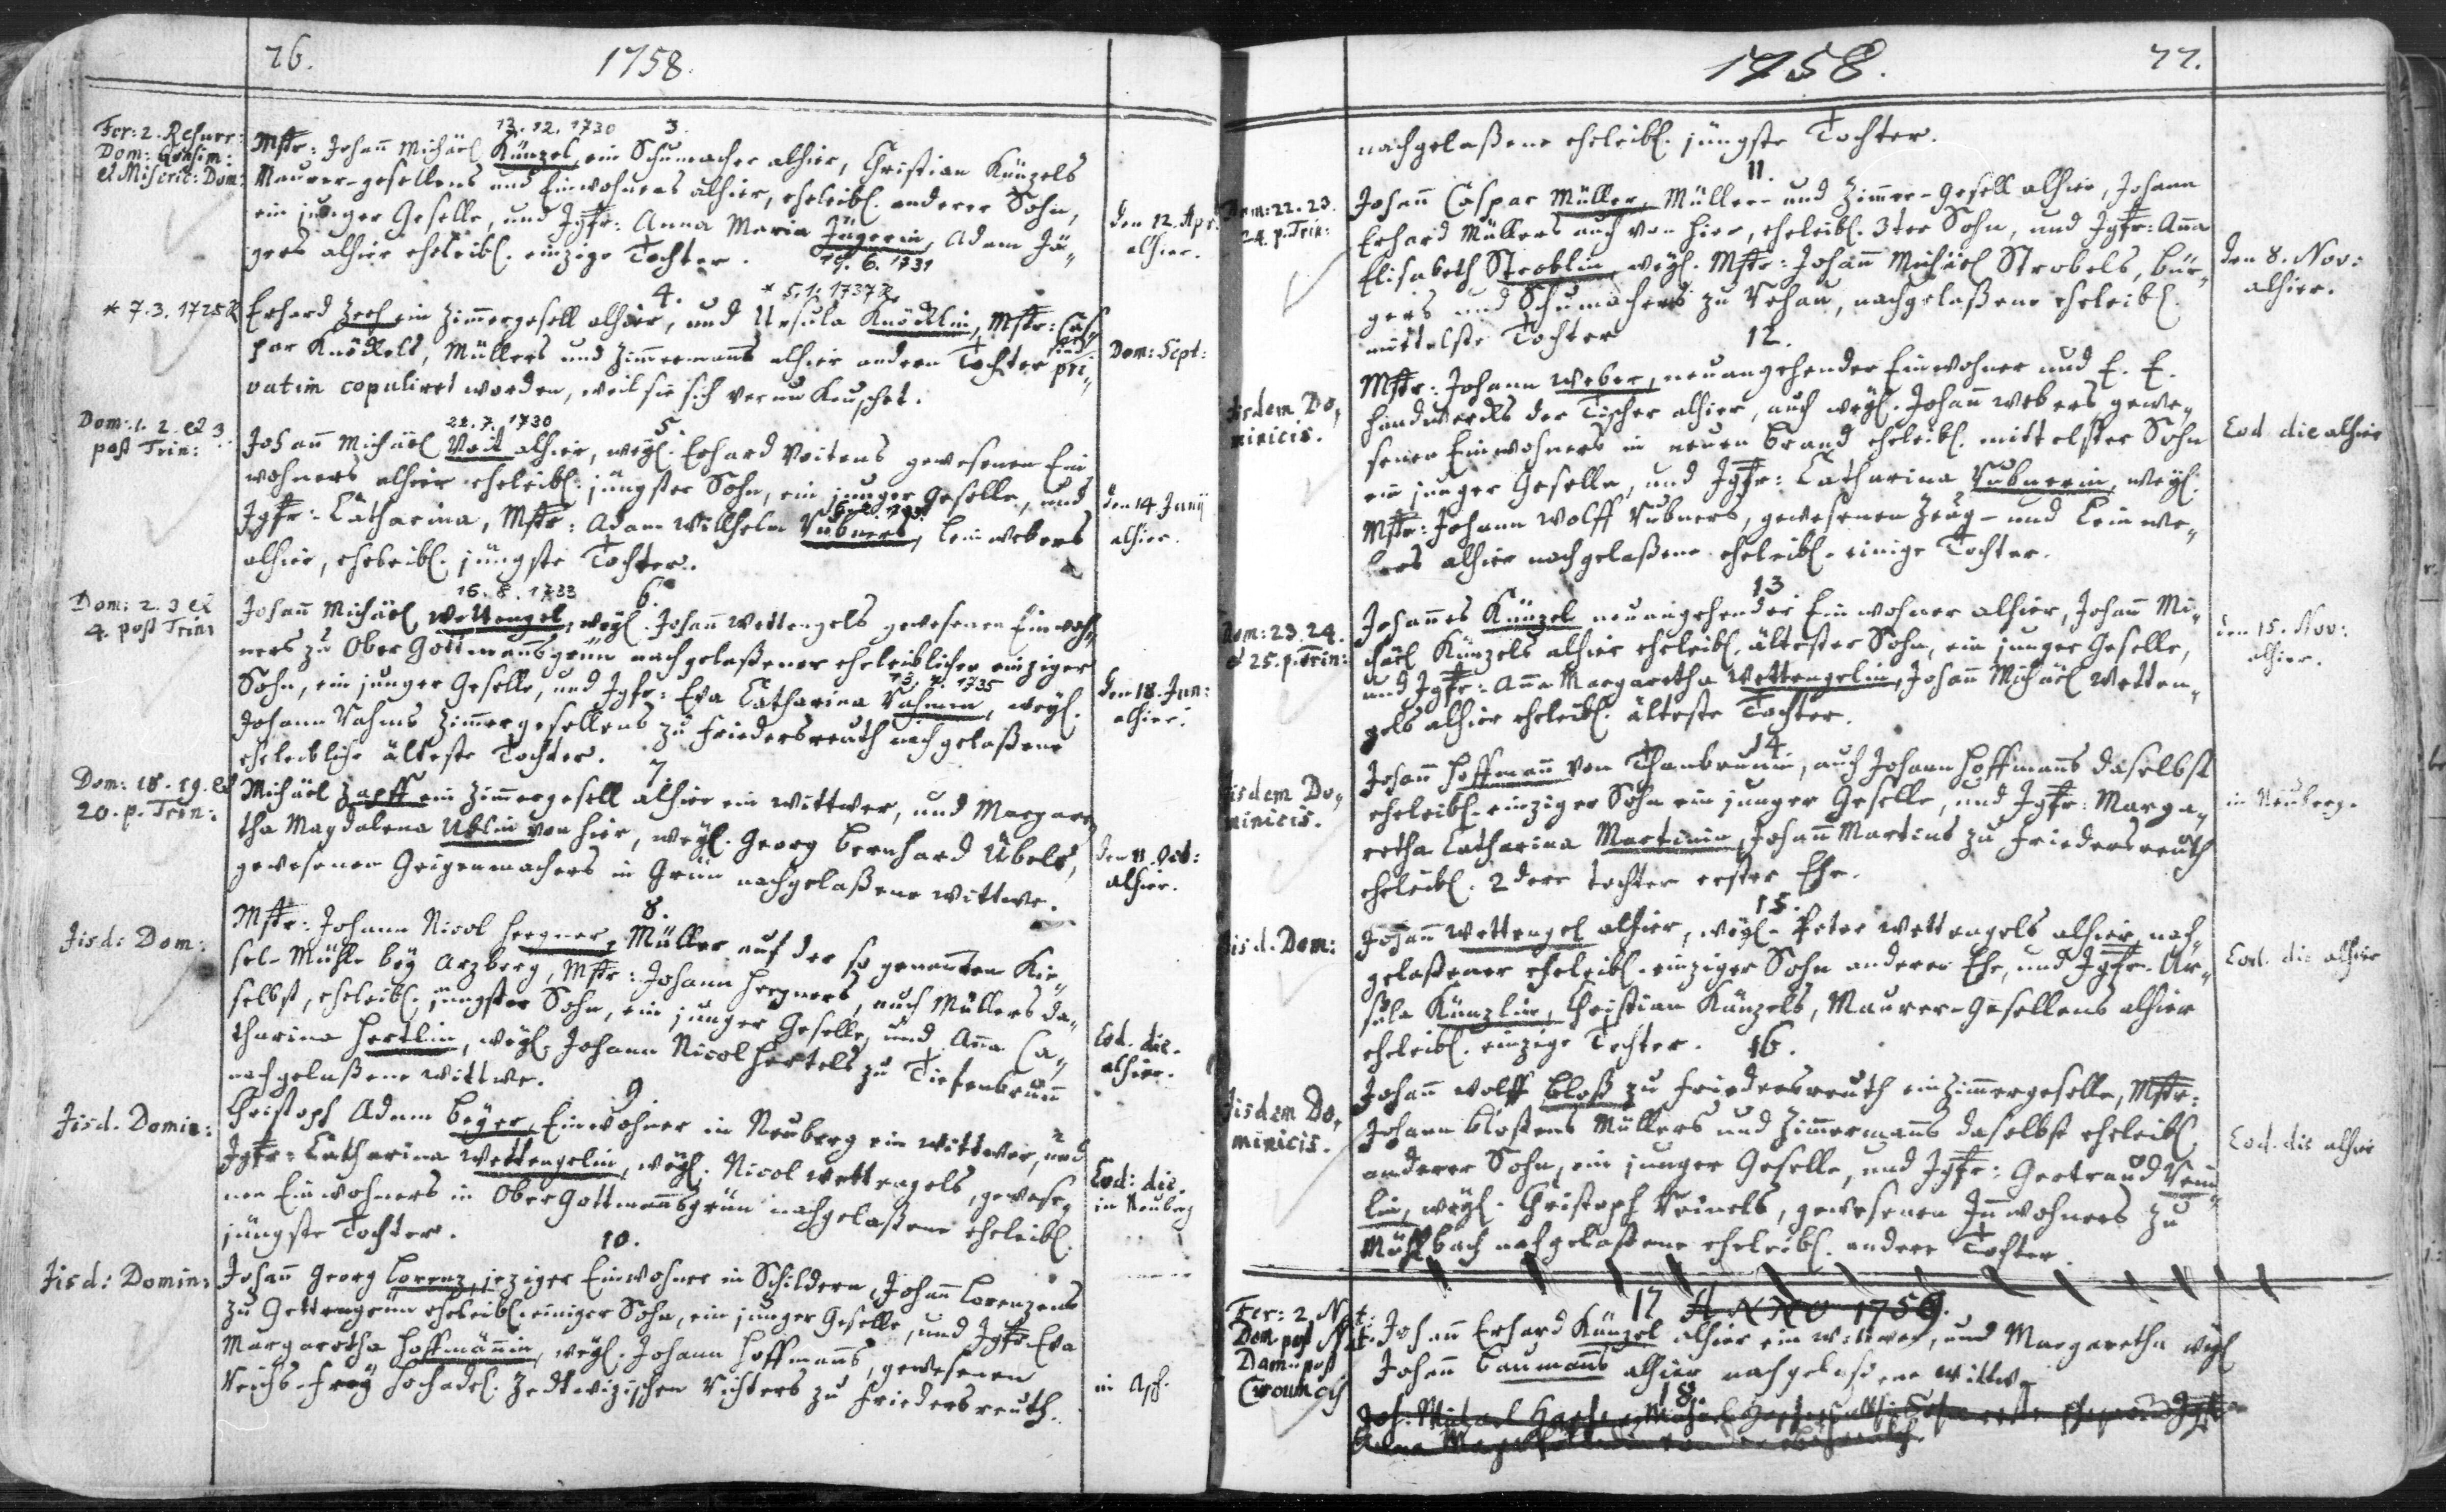 76.
1758.
13. 12. 1730
3.
Fer: 2. Resurr:
Dom: Quasim:
et Miseric: Dom:
Mstr: Johann Michäel Künzel, ein Schumacher alhier, Christian Künzels
Maurer-gesellens und Einwohners alhier, eheleibl. anderer Sohn,
ein junger Geselle, und Jgfr: Anna Maria Jägerin, Adam Jä-
gers alhier eheleibl. einzige Tochter.
19. 6. 1731
den 12. Apr.
alhier.
4.
* 5. 1. 1737 R.
* 7. 3. 1725 R
Erhard Zeeh ein Zimmergesell alhier, und Ursula Knöcklin, Mstr: Cas-
par Knöckels, Müllers und Zimmermanns alhier andere Tochter sind pri-
vatim copuliret worden, weil sie sich verunkeuschet.
Dom: Sept:
22. 7. 1730
5.
Dom: 1. 2. et 3
post Trin:
Johann Michäel Veit alhier, weyl. Erhard Veitens gewesenen Ein
wohners alhier eheleibl. jüngster Sohn, ein junger Geselle, und
Jgfr: Catharina, Mstr: Adam Willhelm Rubners, Leinwebers
alhier, eheleibl. jüngste Tochter.
den 14 Junij
alhier.
16. 8. 1733
6.
Dom: 2. 3 et
4. post Trin:
Johann Michäel Wettengel, weyl. Johann Wettengels gewesenen Einwoh-
ners zu Ober Gottmannsgrün nachgelaßener eheleiblicher einziger
Sohn, ein junger Geselle, und Jgfr: Eva Catharina Rahmin, weyl.
13. 7. 1735
Johann Rahms Zimmergesellens zu Friedersreuth nachgelaßene
eheleibliche älteste Tochter.
den 18. Jun:
alhier.
7
Dom: 18. 19. et
20. p. Trin:
Michäel Zapff ein Zimmergesell alhier ein Wittwer, und Margare
tha Magdalena Üblin von hier, weyl. Georg Bernhard Übels,
gewesenen Geigenmachers in Grün nachgelaßene Wittwe.
den 11. Oct:
alhier.
8.
Iisd: Dom:
Mstr: Johann Nicol Hregner, Müller auf der so genannten Kie-
sel-Mühle bey Arzberg, Mstr: Johann Hregners, auch Müllers da-
selbst, eheleibl. jüngster Sohn, ein junger Geselle, und Anna Ca-
tharina Hertlin, weyl. Johann Nicol Hertels zu Tiefenbrunn
nachgelaßene Wittwe.
Eod. die.
alhier.
9
Iisd. Domin:
Christoph Adam Beyer, Einwohner in Neuberg ein Wittwer, und
Jgfr: Catharina Wettengelin, weyl. Nicol Wettengels, gewese-
nen Einwohners in Ober Gottmannsgrün nachgelaßene eheleibl.
jüngste Tochter.
Eod: die
in Neuberg
10.
Iisd: Domin:
Johann Georg Lorenz, jeziger Einwohner in Schildern, Johann Lorenzens
zu Gottmgrün eheleibl. einiger Sohn, ein junger Geselle, und Jgfr Eva
Margaretha Hoffmännin, weyl. Johann Hoffmanns, gewesenen
Reichs-frey Hochadel. Zedtwizischen Richters zu Friedersreuth.
in Asch.
1758.
77.
nachgelaßene eheleibl. jüngste Tochter.
11.
Dom: 22. 23.
24. p. Trin:
Johann Caspar Müller, Müller- und Zimmer-Gesell alhier, Johann
Erhard Müllers auch von hier, eheleibl. 3ter Sohn, und Jgfr: Anna
Elisabeth Stroblin, weyl. Mstr: Johann Michäel Strobels, Bür-
gers und Schumachers zu Rehau, nachgelaßene eheleibl.
mittelste Tochter
den 8. Nov:
alhier.
12.
Iisdem Do-
minicis.
Mstr: Johann Weber, neuangehender Einwohner und E. E.
Handwercks der Tischer alhier, auch weyl. Johann Webers gewe-
senen Einwohners in neuen Brand eheleibl. mittelster Sohn
ein junger Geselle, und Jgfr: Catharina Rubnerin, weyl.
Mstr: Johann Wolff Rubners, gewesenen Zeug- und Leinwe-
bers alhier nachgelaßene eheleibl. einige Tochter.
Eod die alhier
13.
Dom: 23. 24.
et 25. p. Trin:
Johannes Künzel neuangehender Einwohner alhier, Johann Mi-
chäel Künzels alhier eheleibl. ältester Sohn, ein junger Geselle,
und Jgfr: Anna Margaretha Wettengelin, Johann Michäel Wetten-
gels alhier eheleibl. älteste Tochter.
den 15. Nov:
alhier.
14.
Iisdem Do-
minicis.
Johann Hoffmann von Thonbrunn, auch Johann Hoffmanns daselbst
eheleibl. einziger Sohn ein junger Geselle, und Jgfr: Marga-
retha Catharina Martinin, Johann Martins zu Friedersreuth
eheleibl. 2dere Tochter erster Ehe.
in Neuberg.
15.
Iisd. Dom:
Johann Wettengel alhier, weyl. Peter Wettengels alhier nach-
gelaßener eheleibl. einziger Sohn anderer Ehe, und Jgfr. Ur-
sula Künzlin, Christian Künzels, Maurer-Gesellens alhier
eheleibl. einzige Tochter.
Eod. die alhier
16.
Iisdem Do-
minicis.
Johann Wolff Bloß zu Friedersreuth ein Zimmergeselle, Mstr:
Johann Bloßens Müllers und Zimmermanns daselbst eheleibl.
anderer Sohn, ein junger Geselle, und Jgfr: Gertraud Rein-
lin, weyl. Christoph Reinels, gewesenen Innwohners zu
Mühlbach nachgelaßene eheleibl. andere Tochter.
Eod. die alhier
17 ANNO 1759.
Fer: 2. Nat:
Dom. post Nat.
Dom. post
Johann Erhard Künzel alhier ein Wittwer, und Margaretha weyl
Johann Baumanns alhier nachgelaßene Wittwe
18.
Joh. Michael